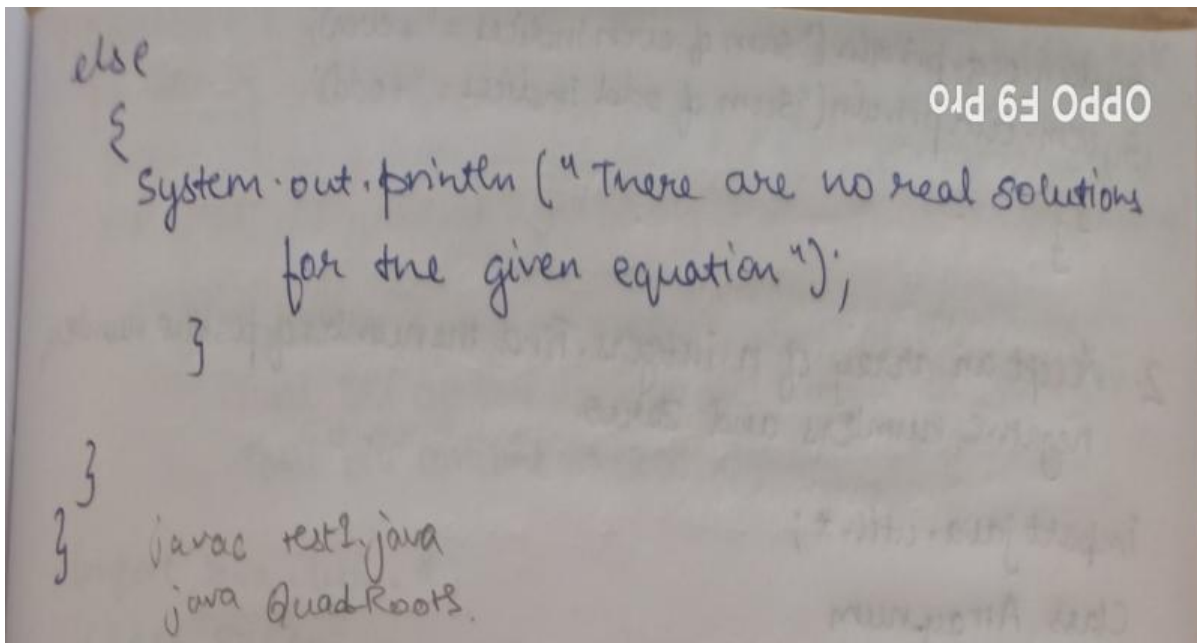 else
{
OPPO F9 Pro
System.out.println ("There are no real solutions
for the given equation");
}
}
}
javac test1.java
java QuadRoots.